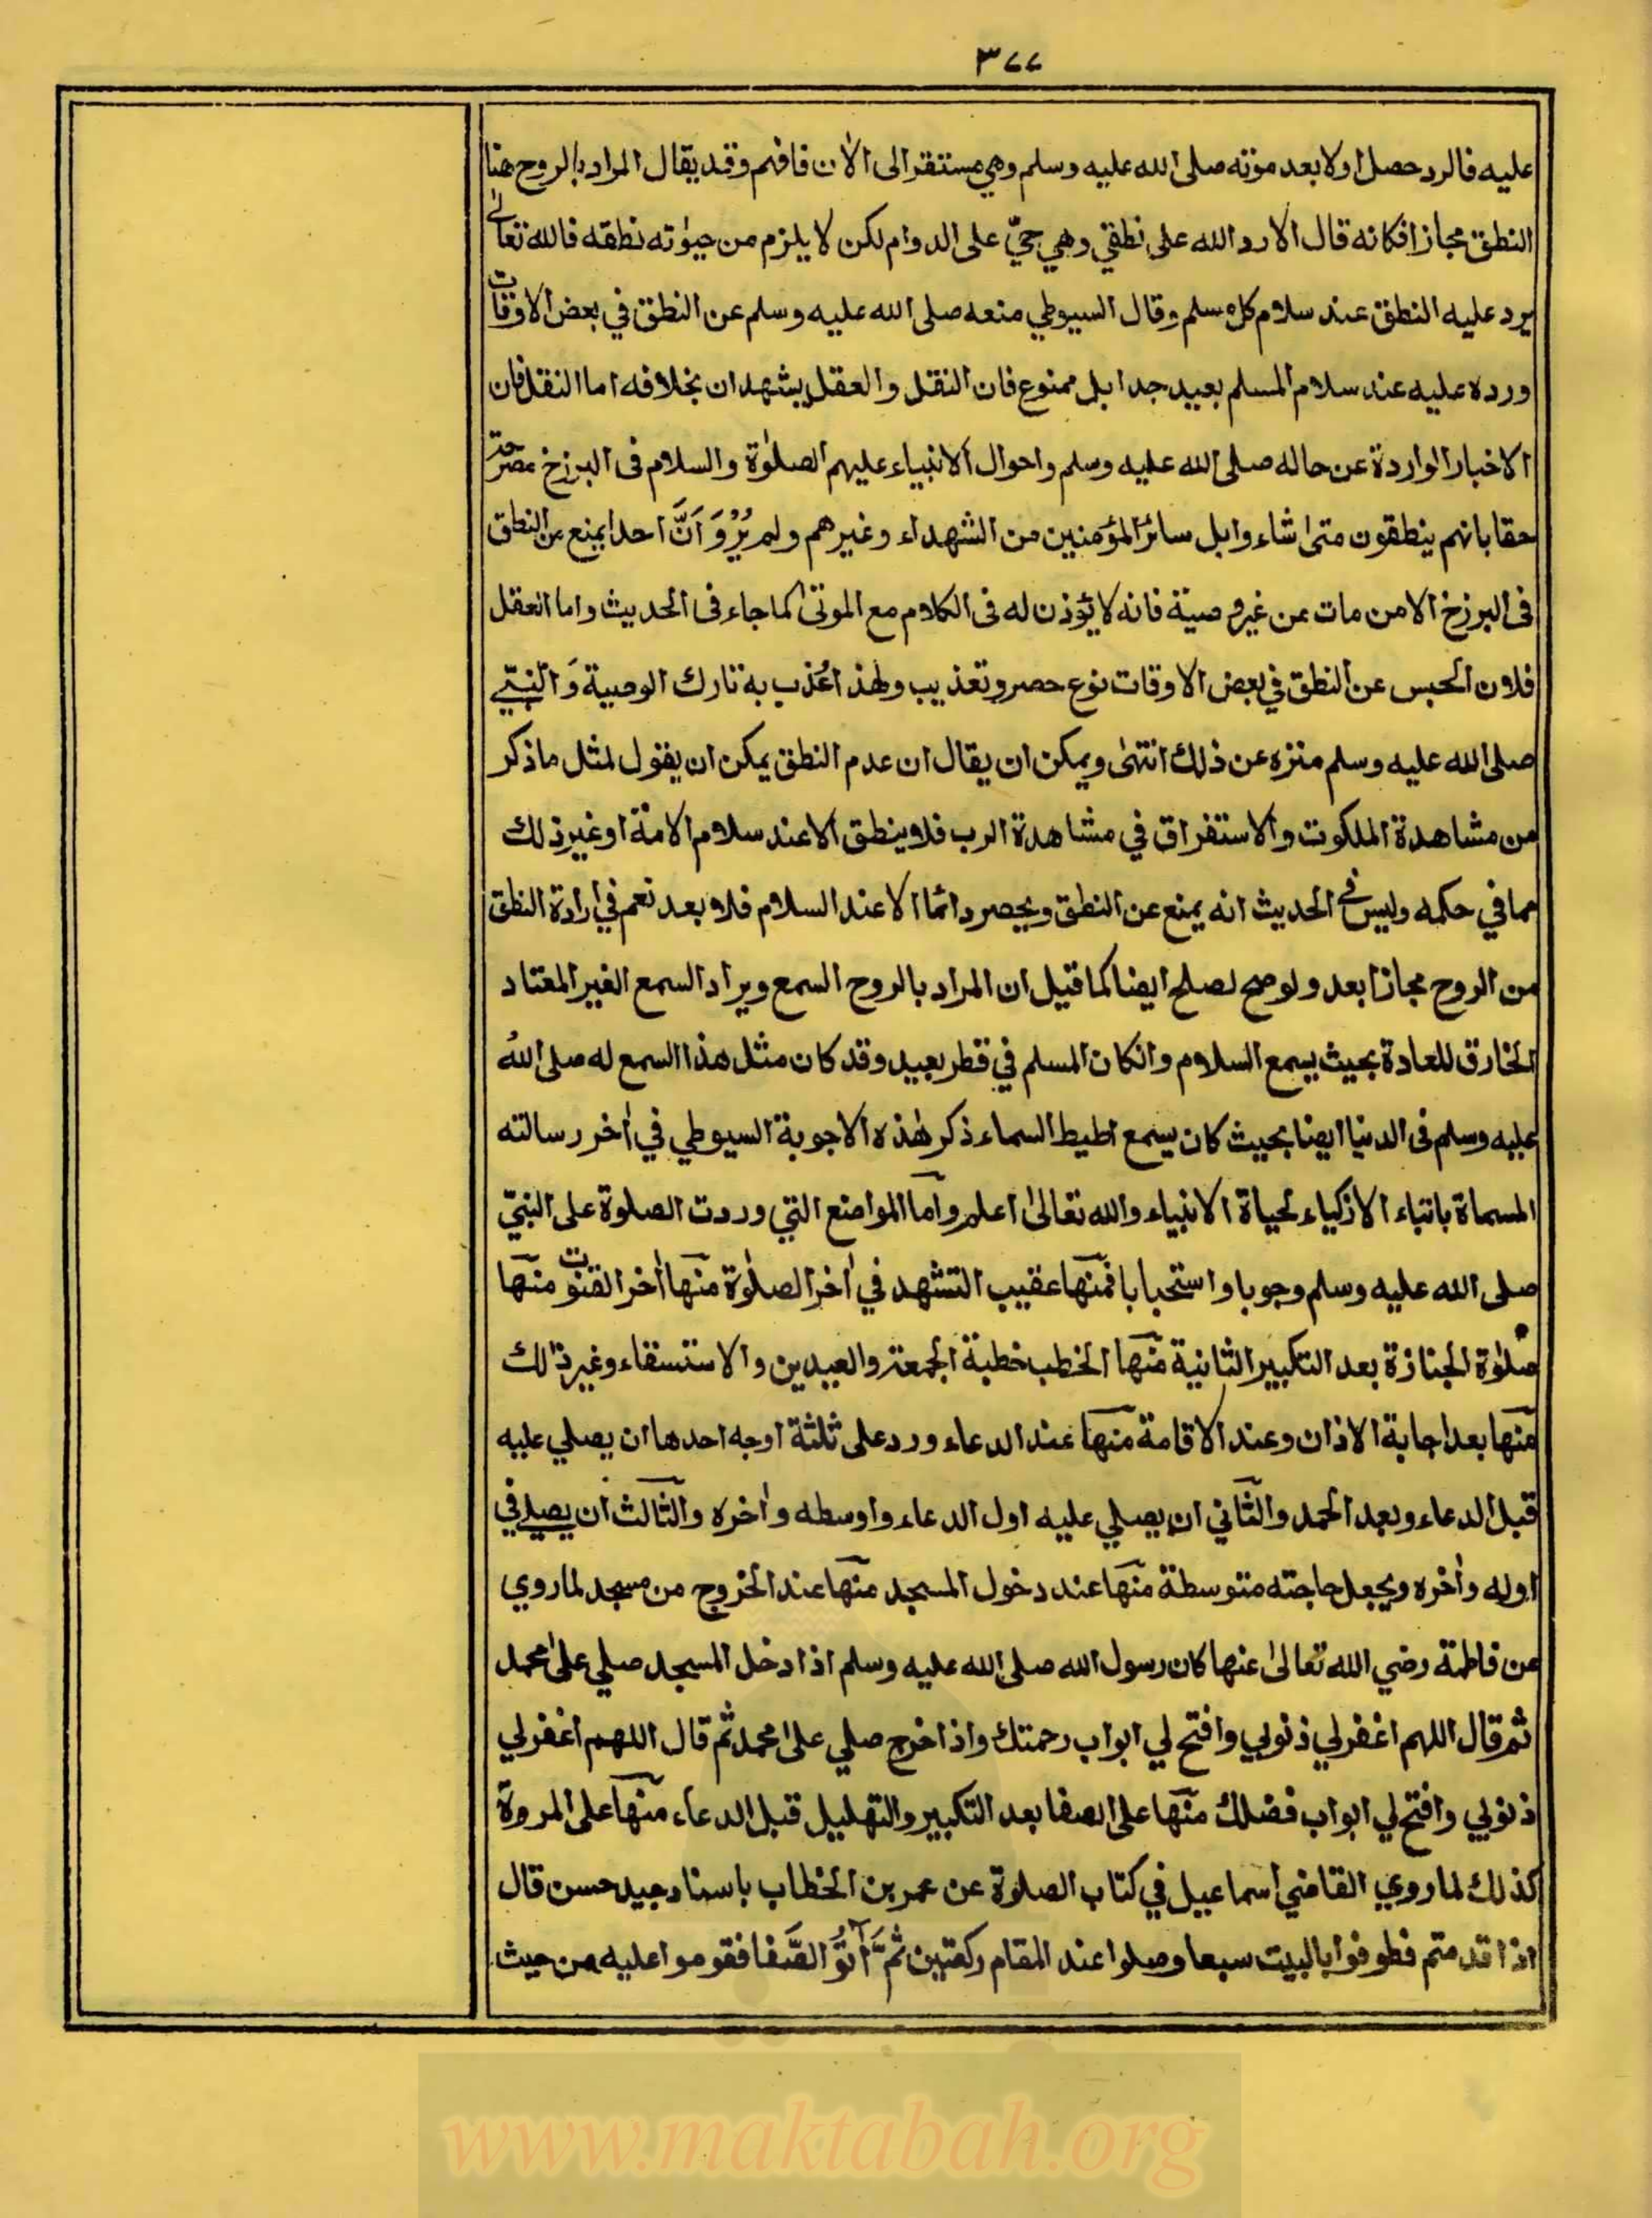 ٣٧٧
عليه فالرد حصل اولا بعد موته صلى الله عليه وسلم وهي مستقر الى الاٰن فافهم وقد يقال المراد بالروح هنا
النطق مجازا فكانه قال الا رد الله علي نطقي وهي حيّ على الدوام لكن لا يلزم من حيوٰته نطقه فالله تعالىٰ
يرد عليه النطق عند سلام كل مسلم وقال السيوطي منعه صلى الله عليه وسلم عن النطق في بعض الاوقات
ورده عليه عند سلام المسلم بعيد جدا بل ممنوع فان النقل والعقل يشهدان بخلافه اما النقل فان
الاخبار الواردة عن حاله صلى الله عليه وسلم واحوال الانبياء عليهم الصلوٰة والسلام فى البرزخ مصرحة
حقا بانهم ينطقون متىٰ شاءوا بل سائر المؤمنين من الشهداء وغيرهم ولم يُرْوَ اَنَّ احدا يمنع من النطق
فى البرزخ الا من مات عن غير وصية فانه لا يؤذن له فى الكلام مع الموتىٰ كما جاء فى الحديث واما العقل
فلان الحبس عن النطق في بعض الاوقات نوع حصر وتعذيب ولهذا عُذب به تارك الوصية وَالنبيّ
صلى الله عليه وسلم منزه عن ذلك انتهىٰ ويمكن ان يقال ان عدم النطق يمكن ان يقول لمثل ما ذكر
من مشاهدة الملكوت والاستغراق في مشاهدة الرب فلا ينطق الا عند سلام الامة او غير ذلك
مما في حكمه وليس في الحديث انه يمنع عن النطق ويحصر دائما الا عند السلام فلا بعد نعم في ارادة النطق
من الروح مجازا بعد ولو صح لصلح ايضا كما قيل ان المراد بالروح السمع ويراد السمع الغير المعتاد
الخارق للعادة بحيث يسمع السلام وانكان المسلم في قطر بعيد وقد كان مثل هذا السمع له صلى اللهُ
عليه وسلم فى الدنيا ايضا بحيث كان يسمع اطيط السماء ذكر هٰذه الاجوبة السيوطي في اٰخر رسالته
المسماة بانباء الاذكياء لحياة الانبياء والله تعالىٰ اعلم واما المواضع التي وردت الصلوة على النبيّ
صلى الله عليه وسلم وجوبا واستحبابا فمنها عقيب التشهد في اٰخر الصلوٰة منها اٰخر القنوت منها
صلوٰة الجنازة بعد التكبير الثانية منها الخطب خطبة الجمعة والعيدين والاستسقاء وغير ذالك
منها بعد اجابة الاذان وعند الاقامة منها عند الدعاء ورد على ثلثة اوجه احدها ان يصلي عليه
قبل الدعاء وبعد الحمد والثاني ان يصلي عليه اول الدعاء واوسطه واٰخره والثالث ان يصلي في
اوله واٰخره ويجعل حاجته متوسطة منها عند دخول المسجد منها عند الخروج من مسجد لما روي
عن فاطمة رضي الله تعالىٰ عنها كان رسول الله صلى الله عليه وسلم اذا دخل المسجد صلي علىٰ محمد
ثم قال اللهم اغفر لي ذنوبي وافتح لي ابواب رحمتك واذا خرج صلي علىٰ محمد ثم قال اللهم اغفر لي
ذنوبي وافتح لي ابواب فضلك منها على الصفا بعد التكبير والتهليل قبل الدعاء منها على المروة
كذلك لما روي القاضي اسماعيل في كتاب الصلوة عن عمر بن الخطاب باسناد جيد حسن قال
اذا قدمتم فطوفوا بالبيت سبعا وصلوا عند المقام ركعتين ثُمَّ اٰتُوُا الصَّفا فقوموا عليه من حيث
www.maktabah.org